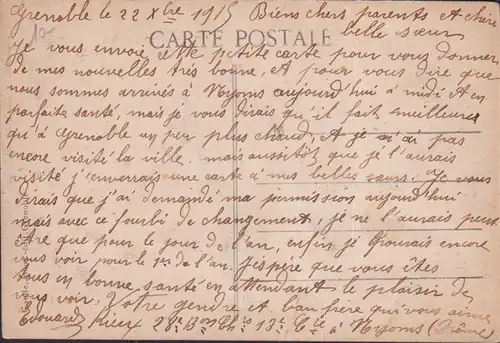 Grenoble le 22 Xbre 1915 Biens chers parents et chère
belle sœur
10-
CARTE POSTALE
Je vous envoie cette petite carte pour vous donner
de mes nouvelles très bonne, et pour vous dire que
nous sommes arrivés à Nyons aujourd'hui à midi et en
parfaite santé, mais je vous dirais qu'il fait meilleures
qu'à Grenoble un peu plus chaud, et je n'ai pas
encore visité la ville, mais aussitôt que je l'aurais
visité j'enverrais une carte à mes belles sœurs. Je vous
dirais que j'ai demandé ma permission aujourd'hui
mais avec ce fourbi de changement, je ne l'aurais peut
être que pour le jour de l'an, enfin je pourais encore
vous voir pour le 1er de l'an. J'espère que vous êtes
tous en bonne santé en attendant le plaisir de
vous voir. Votre gendre et beau frère qui vous aime
Edouard Rieux 28e Bon Chrs 13e Cie à Nyons (Drôme)